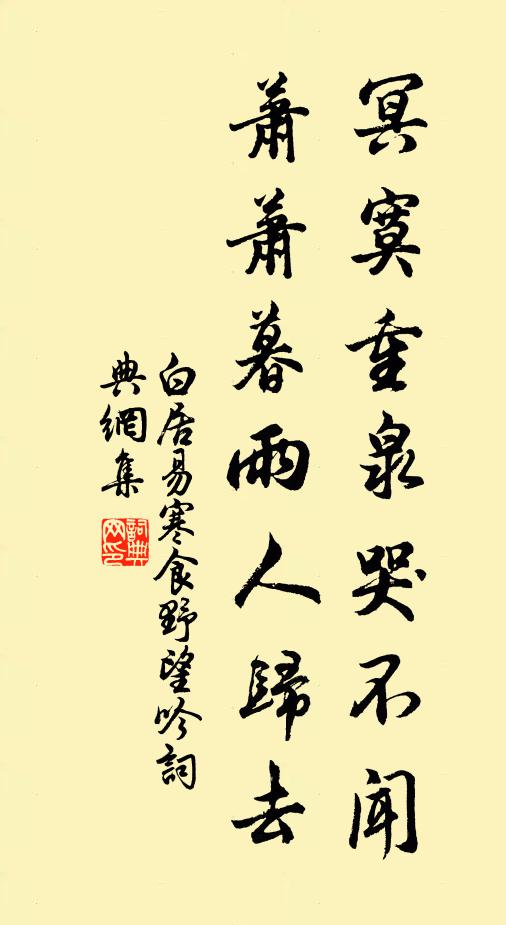 冥寞重泉哭不闻
萧萧暮雨人歸去
白居易寒食野望吟詞
典網集
詞典
网印